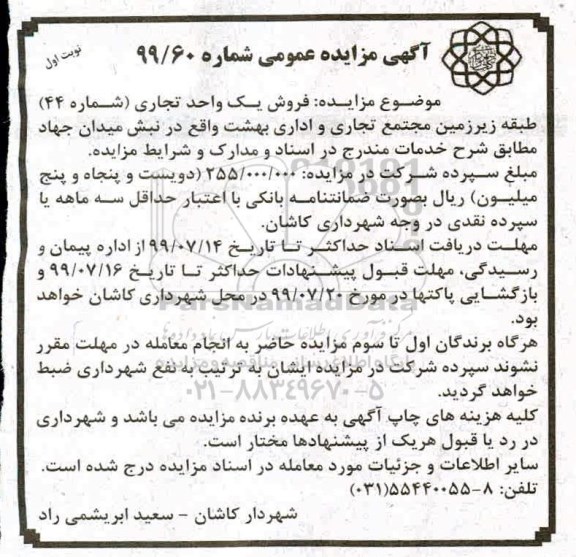 آگهی مزایده عمومی شماره ۹۹/۶۰
نوبت اول
موضوع مزایده: فروش یک واحد تجاری (شماره ۴۴)
طبقه زیرزمین مجتمع تجاری و اداری بهشت واقع در نبش میدان جهاد
مطابق شرح خدمات مندرج در اسناد و مدارک و شرایط مزایده.
مبلغ سپرده شرکت در مزایده: ۲۵۵/۰۰۰/۰۰۰ (دویست و پنجاه و پنج
میلیون) ریال بصورت ضمانتنامه بانکی با اعتبار حداقل سه ماهه یا
سپرده نقدی در وجه شهرداری کاشان.
مهلت دریافت اسناد حداکثر تا تاریخ ۹۹/۰۷/۱۴ از اداره پیمان و
رسیدگی، مهلت قبول پیشنهادات حداکثر تا تاریخ ۹۹/۰۷/۱۶ و
بازگشایی پاکتها در مورخ ۹۹/۰۷/۲۰ در محل شهرداری کاشان خواهد
بود.
ParsNamadData
هرگاه برندگان اول تا سوم مزایده حاضر به انجام معامله در مهلت مقرر
نشوند سپرده شرکت در مزایده ایشان به ترتیب به نفع شهرداری ضبط
خواهد گردید.
۰۲۱-۸۸۳۴۹۶۷۰-۵
کلیه هزینه های چاپ آگهی به عهده برنده مزایده می باشد و شهرداری
در رد یا قبول هریک از پیشنهادها مختار است.
سایر اطلاعات و جزئیات مورد معامله در اسناد مزایده درج شده است.
تلفن: ۸-۵۵۴۴۰۰۵۵(۰۳۱)
شهردار کاشان - سعید ابریشمی راد